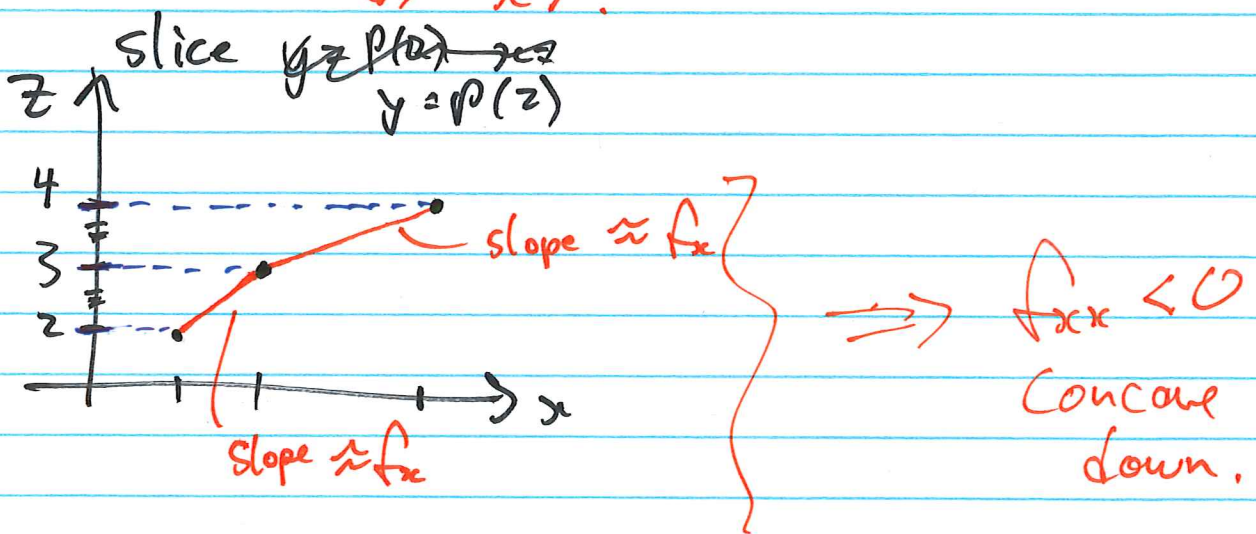 slice
y = P(2)
z
4
3
2
x
slope ≈ fx
slope ≈ fx
⇒ fxx < 0
concave
down.